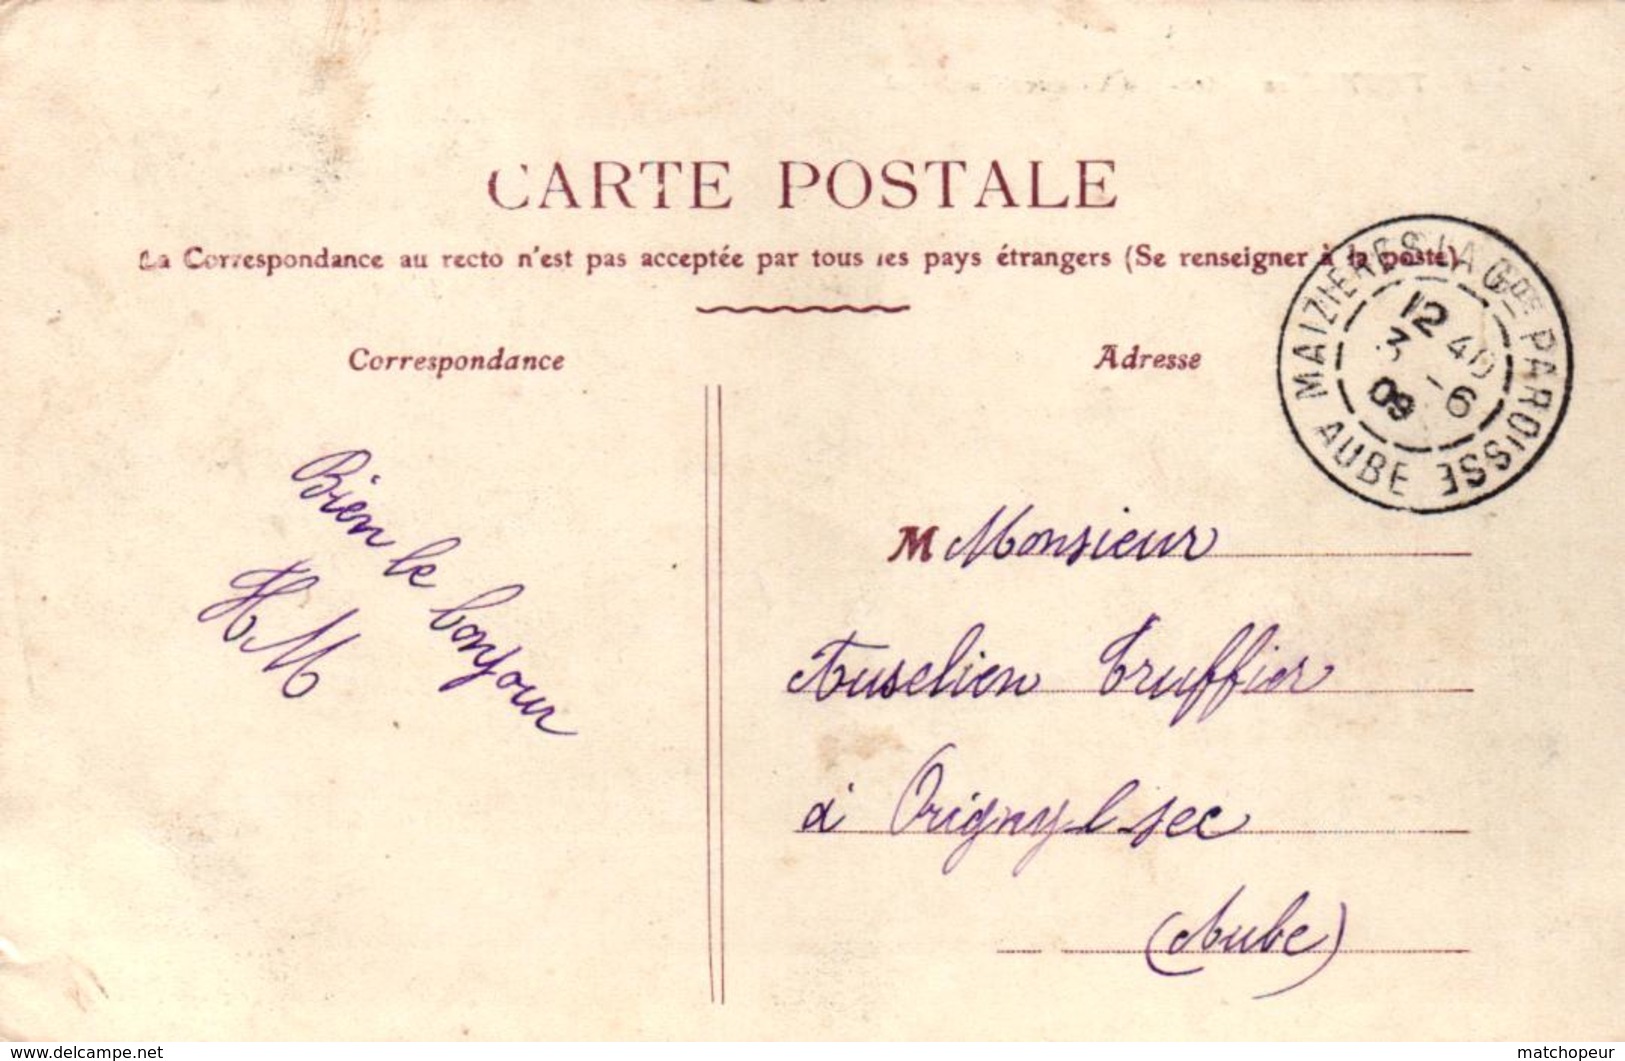 CARTE POSTALE
La Correspondance au recto n'est pas acceptée par tous les pays étrangers (Se renseigner à la poste)
Correspondance
Adresse
MAIZIERES LA Gde PAROISSE
AUBE
12 40
3 - 6
09
Bien le bonjour
HM
M Monsieur
Truffier
à Origny l sec
(Aube)
www.delcampe.net
matchopeur